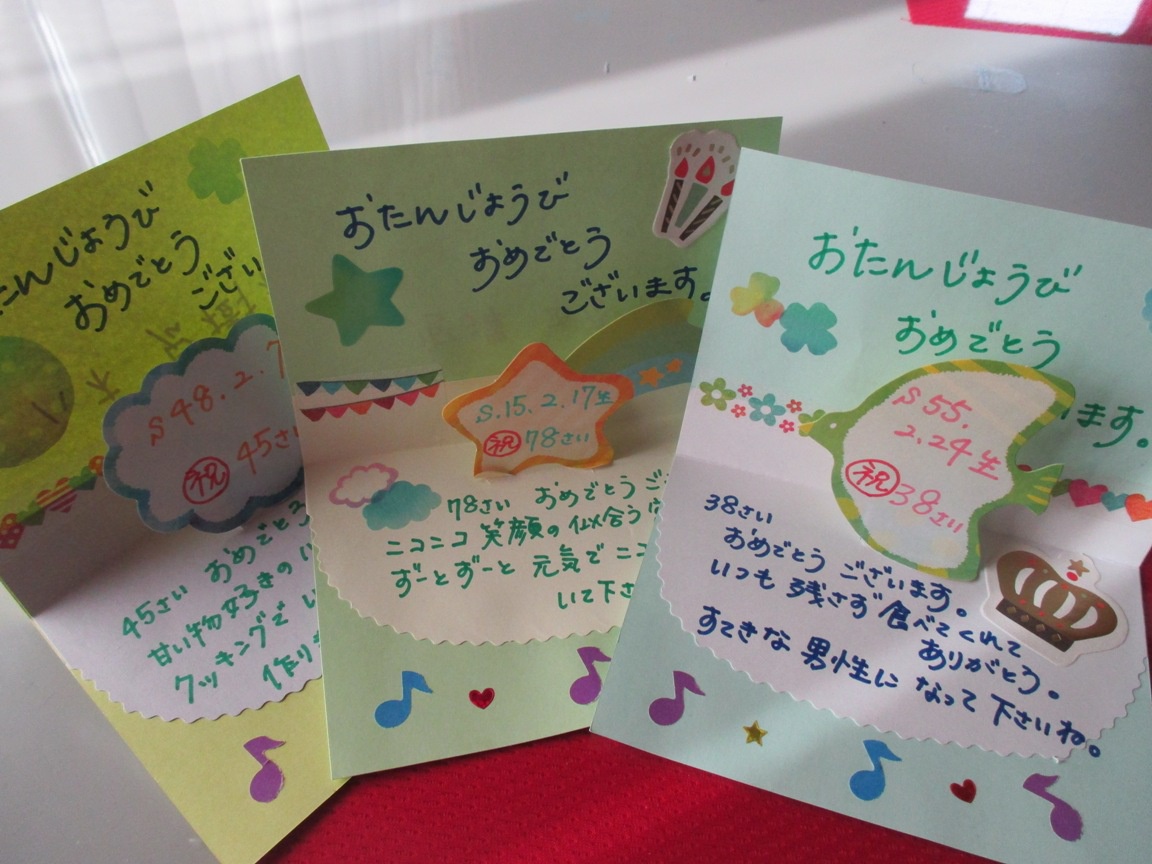 たんじょうび
おめでとう
ござい
S48.2.7
㊗ 45さ
45さい おめでとう
甘い物好きの
クッキングで
作り
おたんじょうび
おめでとう
ございます。
S.15.2.17生
㊗ 78さい
78さい おめでとう ご
ニコニコ 笑顔の似合う
ずーとずーと 元気で ニコ
いて下さ
おたんじょうび
おめでとう
ます。
S55.
2.24生
㊗38さい
38さい
おめでとう ございます。
いつも 残さず食べてくれて
ありがとう。
すてきな 男性に なって 下さいね。